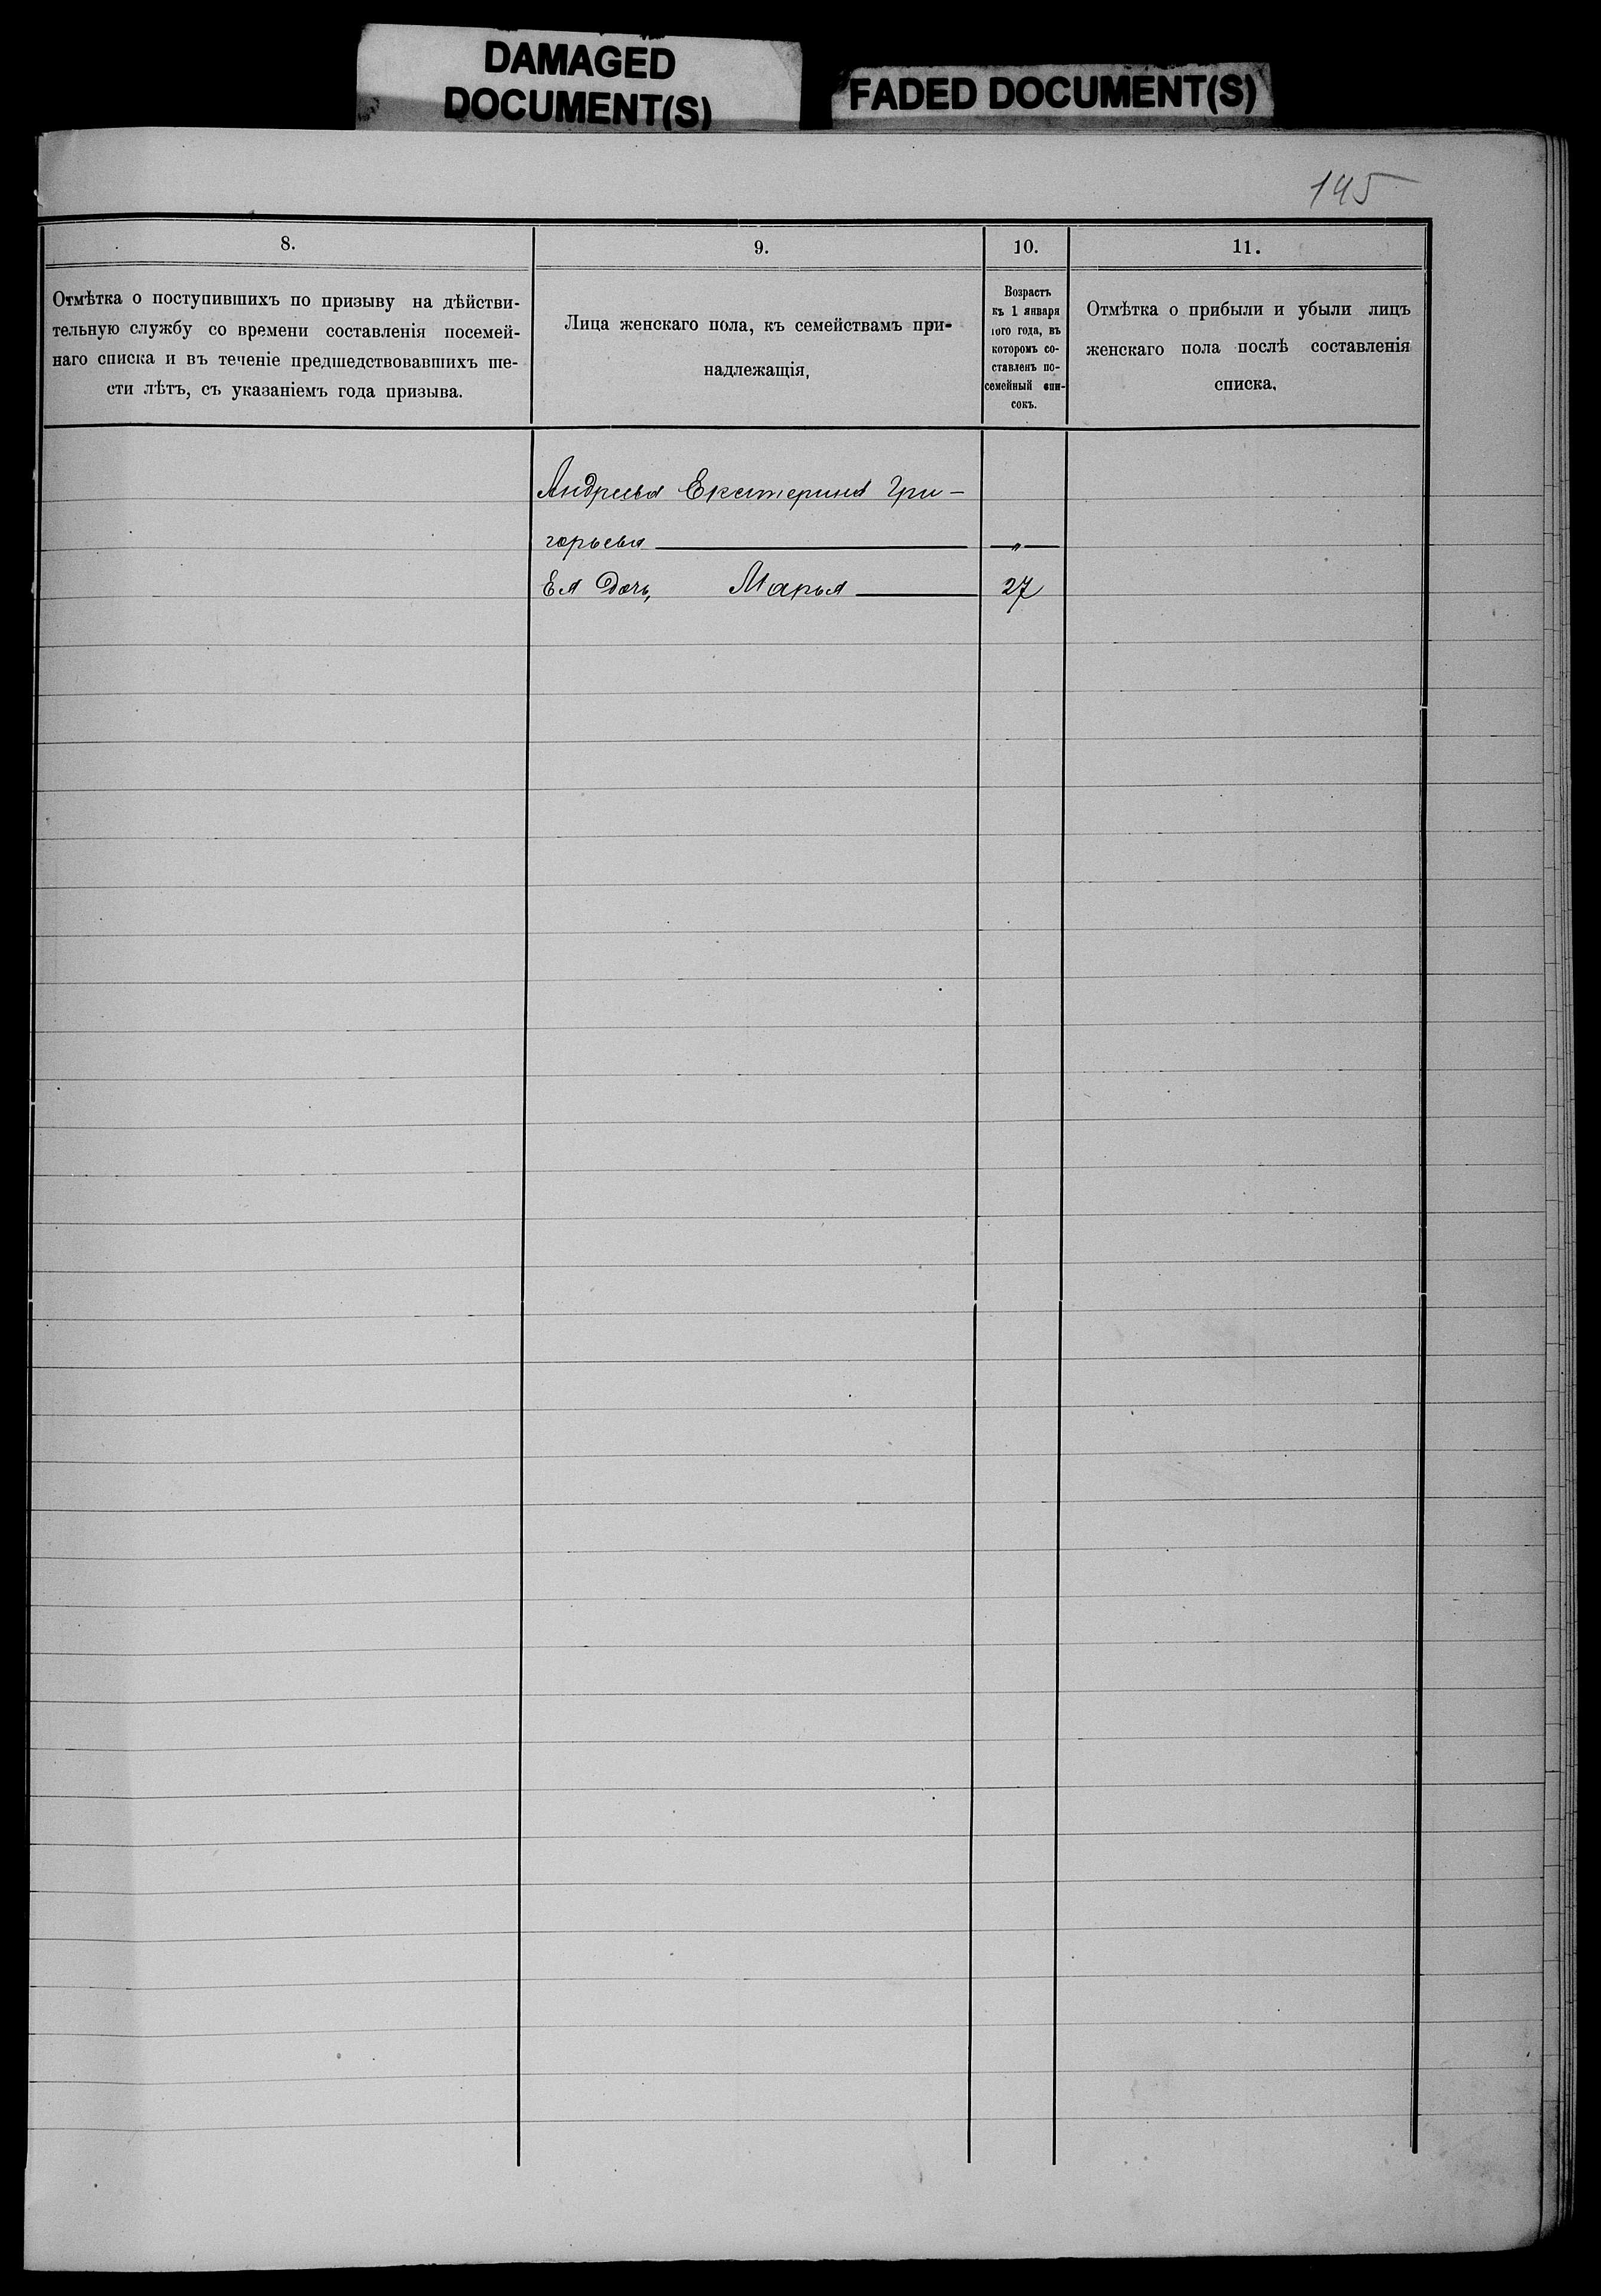 DAMAGED
DOCUMENT(S)
FADED DOCUMENT(S)
195
8.
Отмѣтка о поступившихъ по призыву на дѣйстви-
тельную службу со времени составленія посемей-
наго списка и въ теченіе предшедствовавшихъ ше-
сти лѣтъ, съ указаніемъ года призыва.
9.
Лица женскаго пола, къ семействамъ при-
надлежащія,
10.
Возрастъ
къ 1 января
того года, въ
которомъ со-
ставленъ по-
семейный спи-
сокъ.
11.
Отмѣтка о прибыли и убыли лицъ
женскаго пола послѣ составленія
списка.
Андреева Екатерина Гри-
горьева — „ —
Ея дочь, Марья — 27